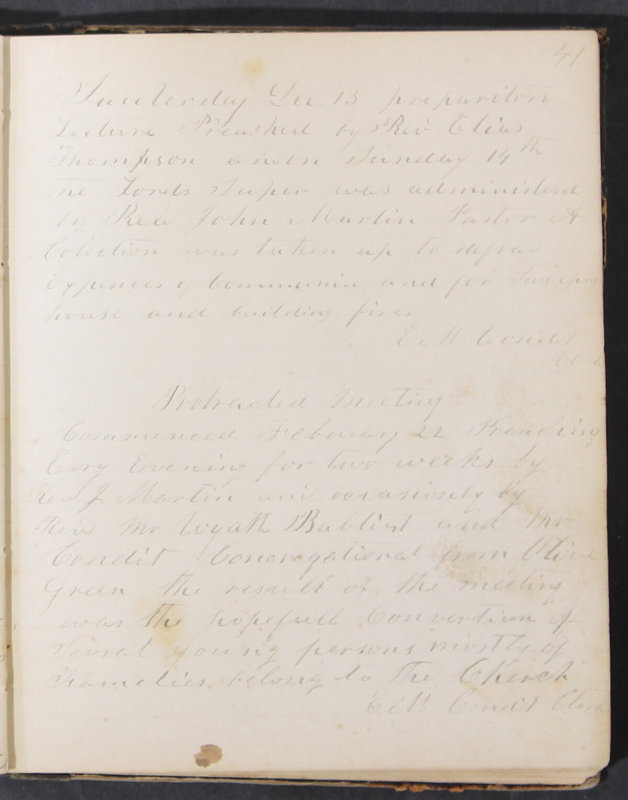 41
Sauterday Dec 13 preparitory
Lecture Preached by Rev. Elias
Thompson and on Sunday 14th
the Lords Super was administerd
by Rev John Martin Pastor A
Colection was taken up to defray
Expences of Communin and for Sweeping
house and building fires
E M Condit
Clerk
Protracted Meeting
Commenced February 22 Preaching
Evry Evening for two weeks by
Rev J Martin and occasionly by
Rev Mr Wyatt Babtist and Mr
Condit Congregational from Olive
Green the result of the meeting
was the hopefull Convertion of
Sevral young persons mostly of
Famelies belong to the Church
E M Condit Clerk